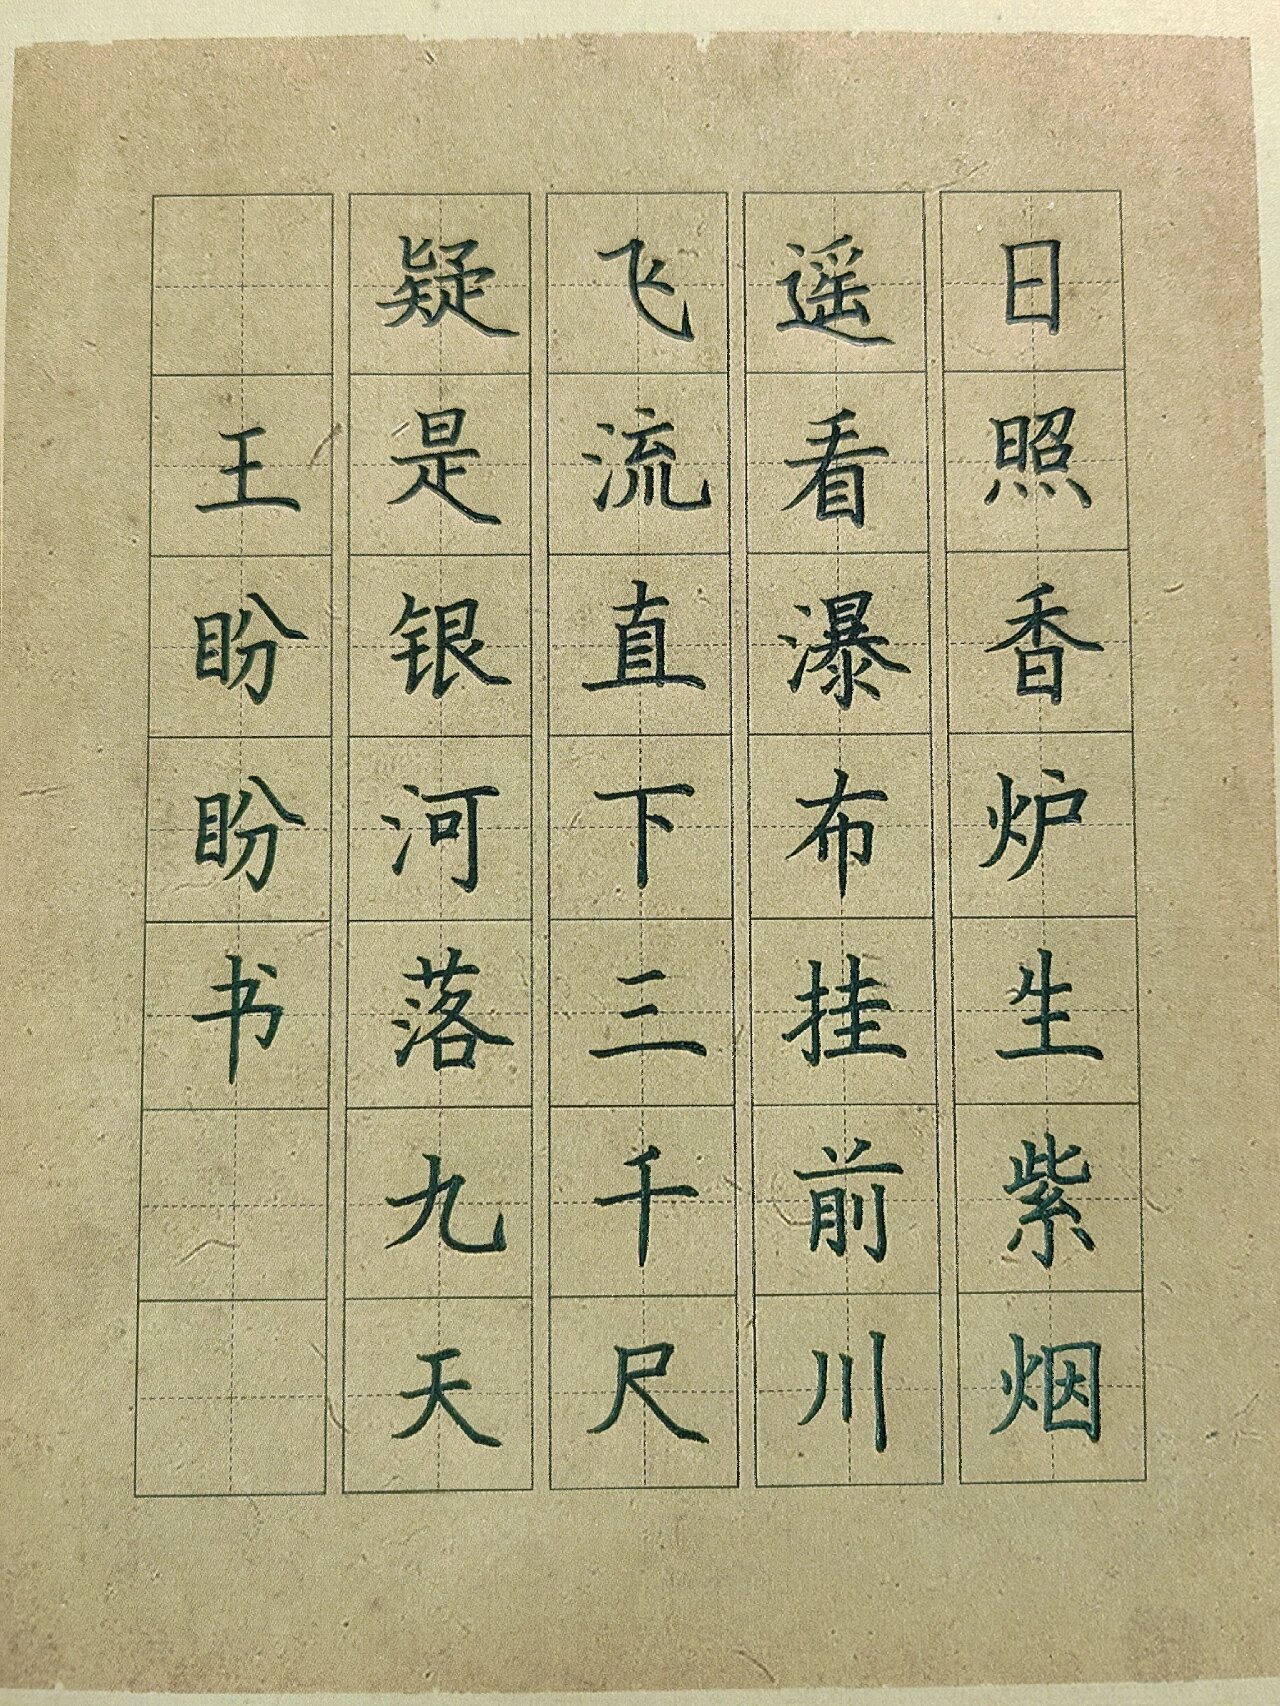 日照香炉生紫烟
遥看瀑布挂前川
飞流直下三千尺
疑是银河落九天
王盼盼书